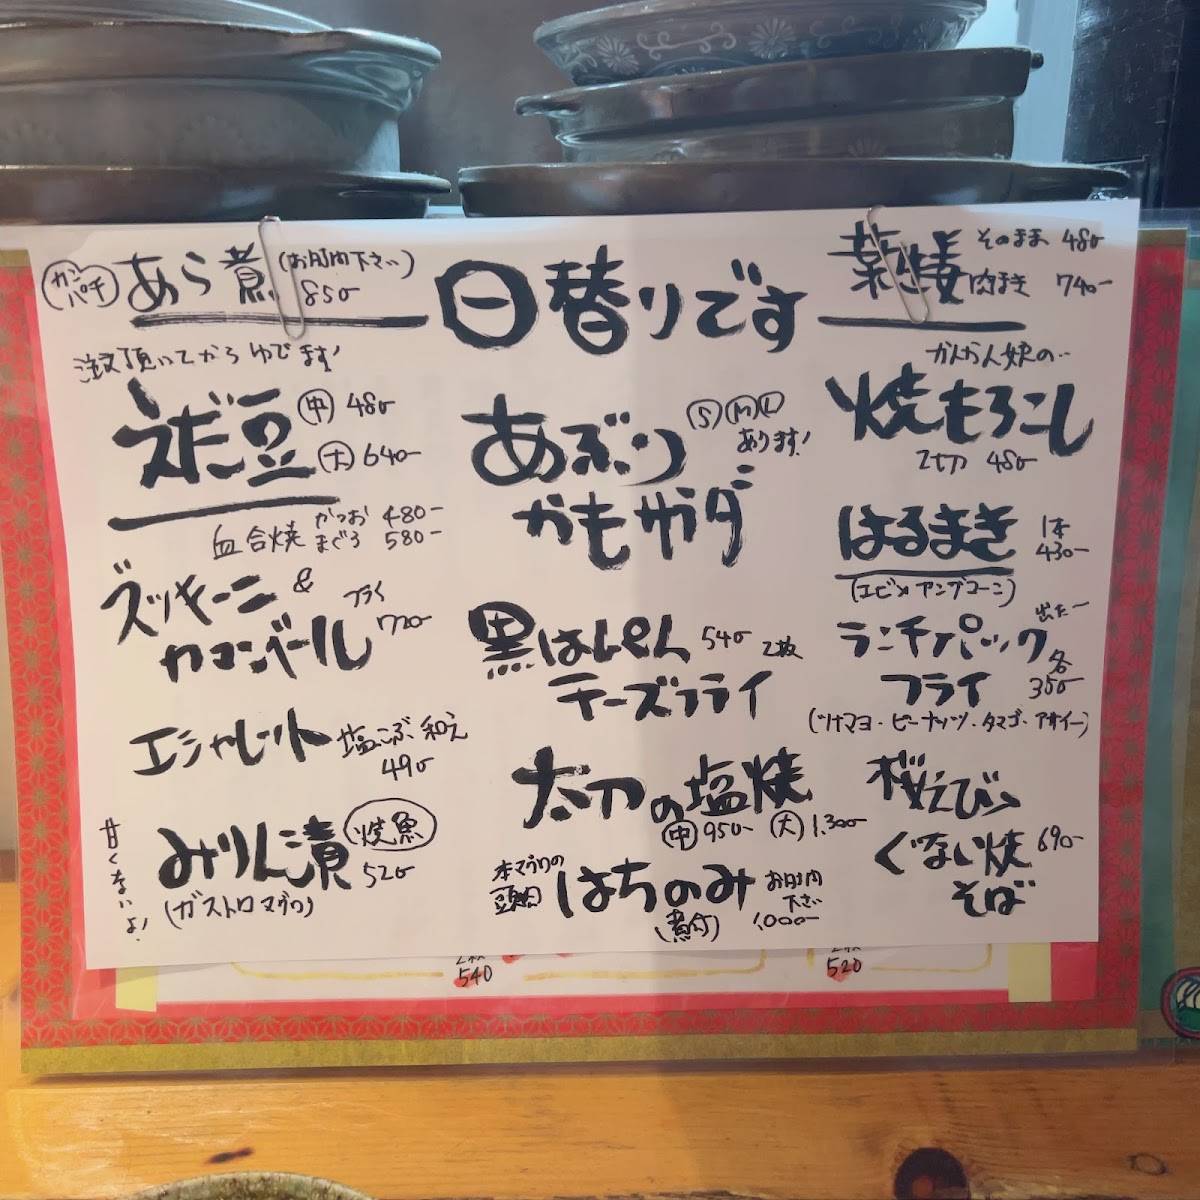 日替りです
カンパチ あら煮 (お時間下さい) 850
注文頂いてからゆでます!
えだ豆 中 480
大 640-
血合焼 かつお 480-
まぐろ 580-
ズッキーニ &
カマンベール フライ 720-
エシャレット 塩こぶ和え
490
甘くないよ!
みりん漬 焼魚 520
(ガストロマグロ)
あぶり S M L
あります!
かもサラダ
黒はんぺん 540 2枚
チーズフライ
太刀の塩焼
中 950- 大 1,300-
本マグロの
頭肉 はちのみ お時間
下さい
(煮付) 1,000-
葉生姜 そのまま 480
肉まき 740-
かんかん娘の..
焼もろこし
2切 480
はるまき 1本
430-
(エビ×ヤングコーン)
出たー
ランチパック
フライ 各
350
(ツナマヨ・ピーナッツ・タマゴ・)
桜えび
くない焼 690-
そば
2枚
540
520